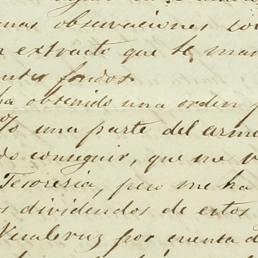 mas observaciones so
extracto que te man
fondos
ha obtenido una orden p
una parte del arme
do conseguir, que me
Tesoreria, pero me ha
s dividendos de estos
Veracruz por cuenta d